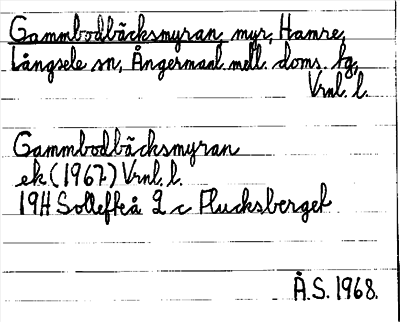 Gammbodbäcksmyran, myr, Hamre,
Långsele sn, Ångermanl. mell. doms. tg,
Vrnl. l.
Gammbodbäcksmyran
ek (1967) Vrnl. l.
19H Sollefteå 2 c Plucksberget
Å.S. 1968.